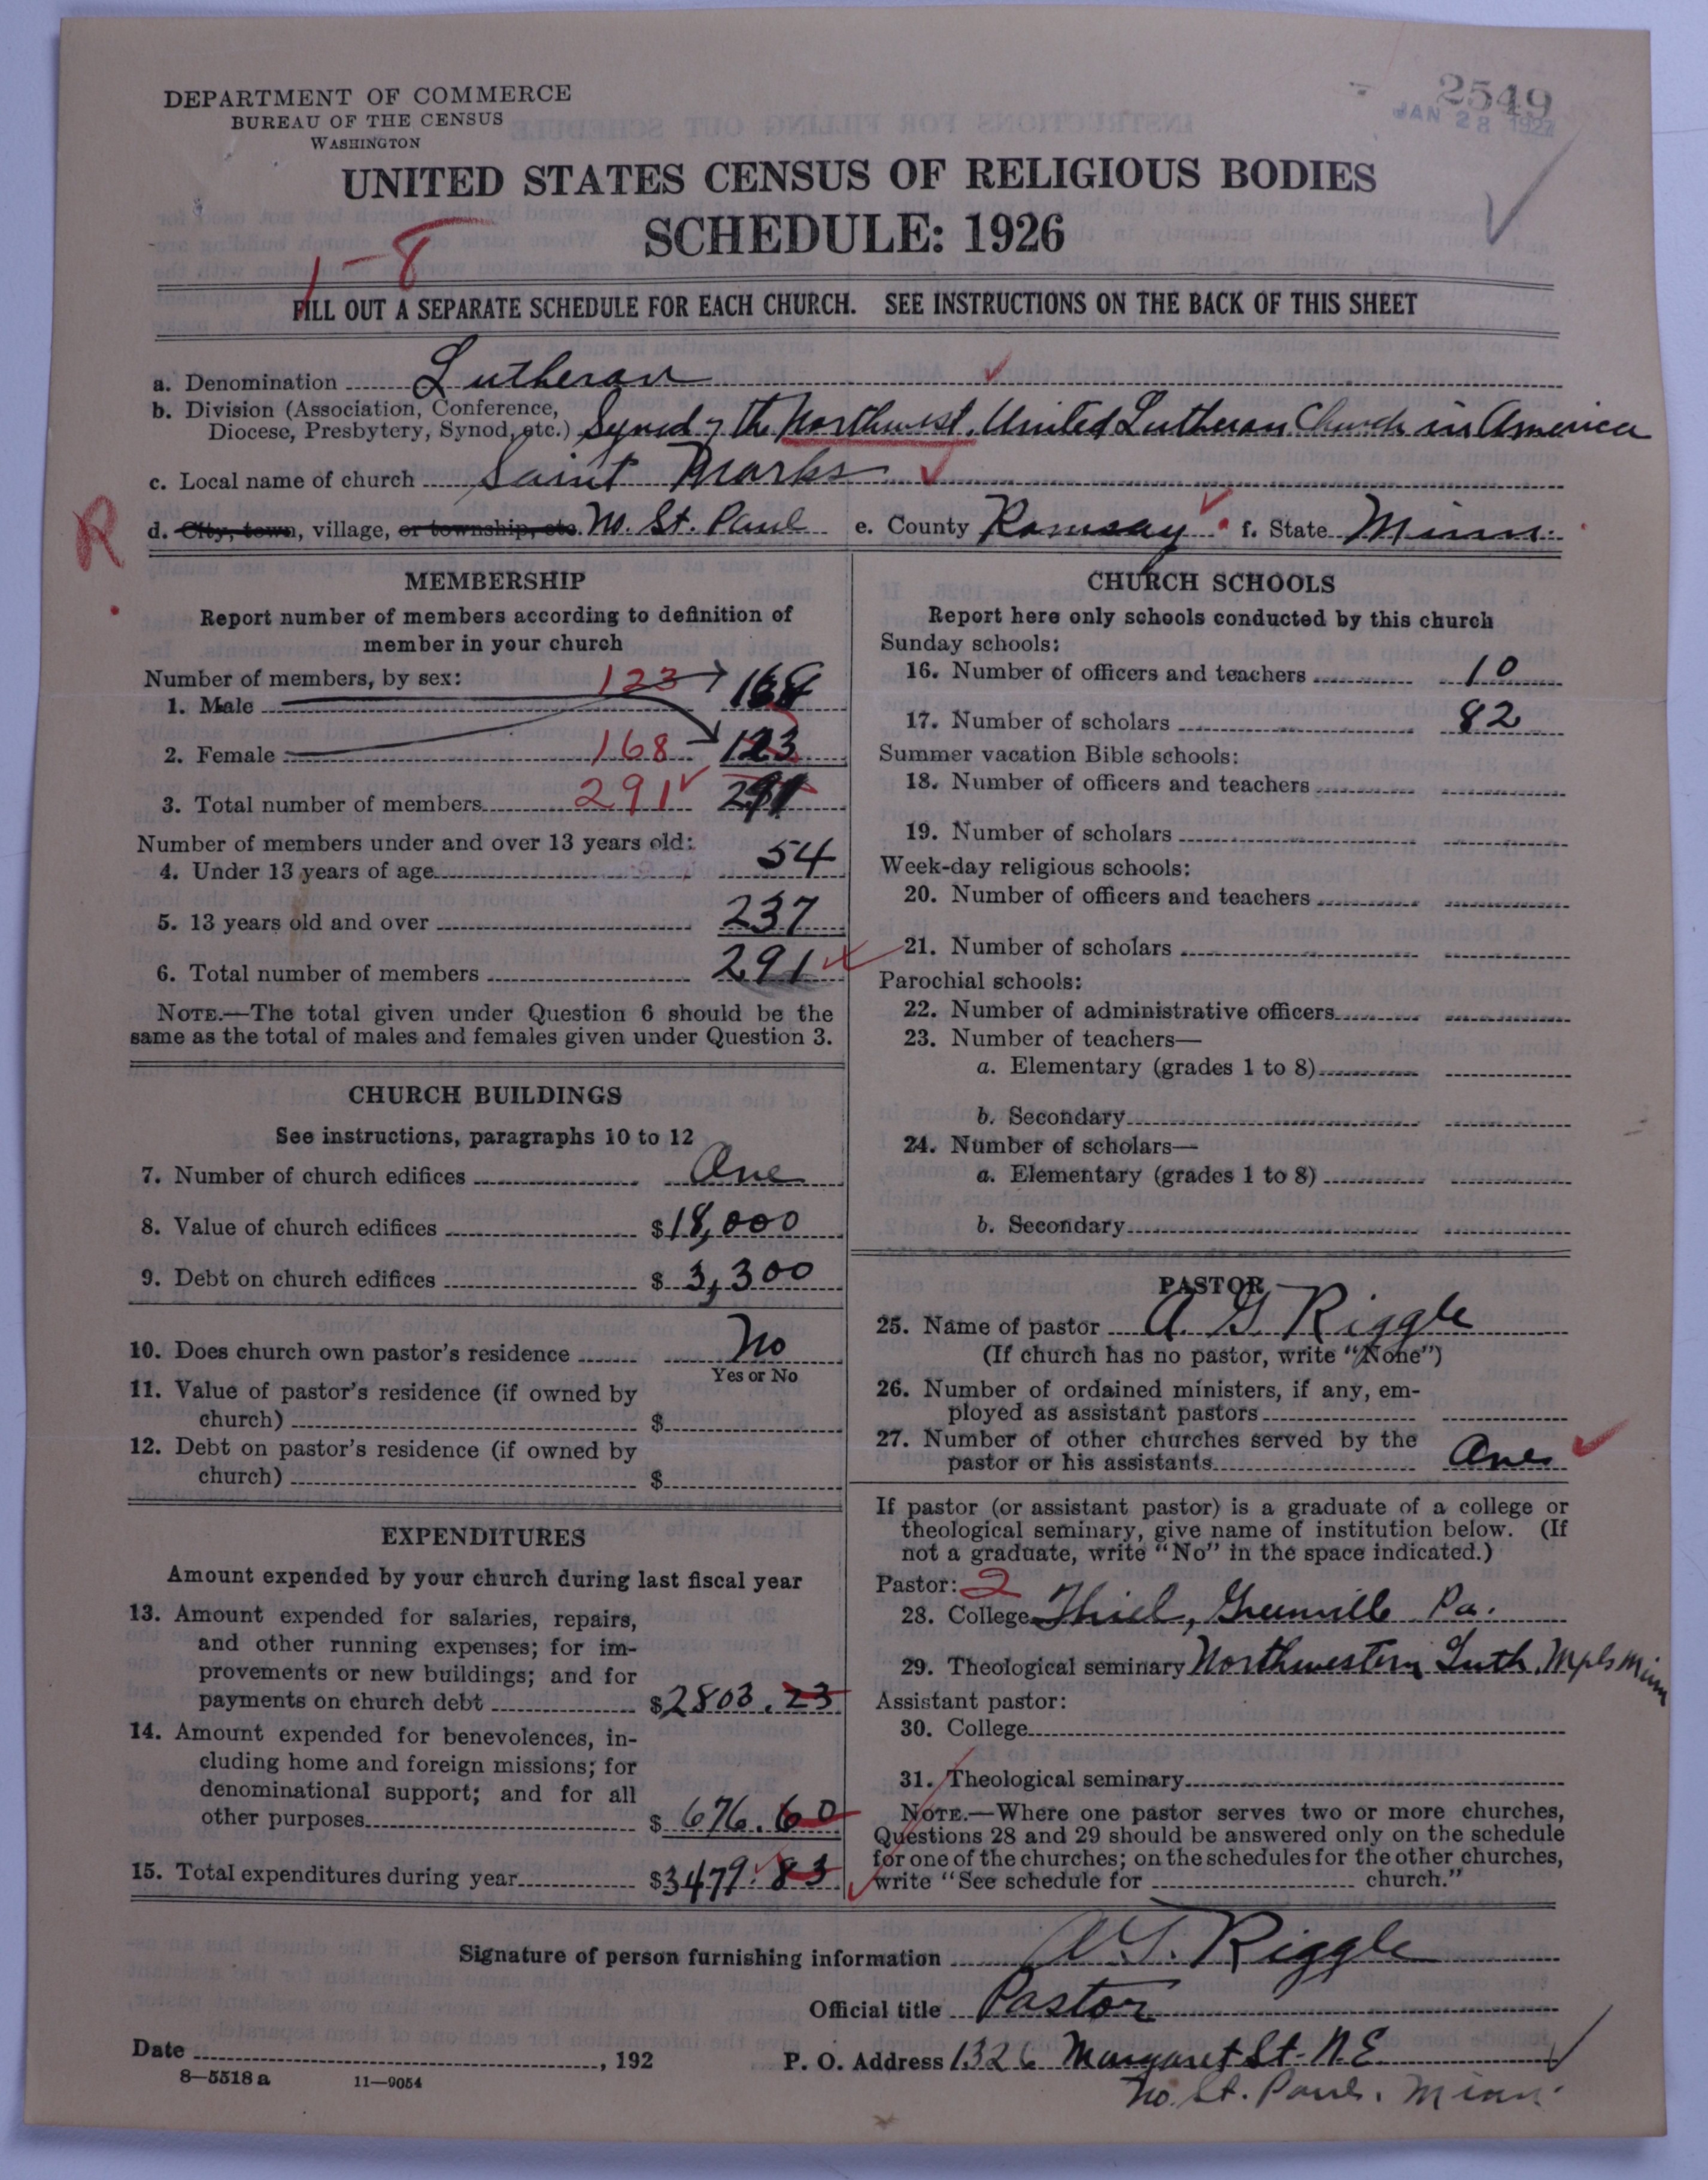 2549
JAN 28 1927
DEPARTMENT OF COMMERCE
BUREAU OF THE CENSUS
WASHINGTON
UNITED STATES CENSUS OF RELIGIOUS BODIES
SCHEDULE: 1926
1-8
FILL OUT A SEPARATE SCHEDULE FOR EACH CHURCH. SEE INSTRUCTIONS ON THE BACK OF THIS SHEET
a. Denomination Lutheran
b. Division (Association, Conference,
Diocese, Presbytery, Synod, etc.) Synod of the Northwest, United Lutheran Church in America
c. Local name of church Saint Marks
R
d. City, town, village, or township, etc. No. St. Paul e. County Ramsay f. State Minn.
MEMBERSHIP
Report number of members according to definition of
member in your church
Number of members, by sex:
1. Male 123 168
2. Female 168 123
3. Total number of members 291 291
Number of members under and over 13 years old:
4. Under 13 years of age 54
5. 13 years old and over 237
6. Total number of members 291
NOTE.—The total given under Question 6 should be the
same as the total of males and females given under Question 3.
CHURCH BUILDINGS
See instructions, paragraphs 10 to 12
7. Number of church edifices One
8. Value of church edifices $18,000
9. Debt on church edifices $3,300
10. Does church own pastor's residence No
Yes or No
11. Value of pastor's residence (if owned by
church) $
12. Debt on pastor's residence (if owned by
church) $
EXPENDITURES
Amount expended by your church during last fiscal year
13. Amount expended for salaries, repairs,
and other running expenses; for im-
provements or new buildings; and for
payments on church debt $2803.23
14. Amount expended for benevolences, in-
cluding home and foreign missions; for
denominational support; and for all
other purposes $676.60
15. Total expenditures during year $3479.83
CHURCH SCHOOLS
Report here only schools conducted by this church
Sunday schools:
16. Number of officers and teachers 10
17. Number of scholars 82
Summer vacation Bible schools:
18. Number of officers and teachers
19. Number of scholars
Week-day religious schools:
20. Number of officers and teachers
21. Number of scholars
Parochial schools:
22. Number of administrative officers
23. Number of teachers—
a. Elementary (grades 1 to 8)
b. Secondary
24. Number of scholars—
a. Elementary (grades 1 to 8)
b. Secondary
PASTOR
25. Name of pastor A. G. Riggle
(If church has no pastor, write "None")
26. Number of ordained ministers, if any, em-
ployed as assistant pastors
27. Number of other churches served by the
pastor or his assistants One
If pastor (or assistant pastor) is a graduate of a college or
theological seminary, give name of institution below. (If
not a graduate, write "No" in the space indicated.)
Pastor: 2
28. College Thiel, Greenville Pa.
29. Theological seminary Northwestern Luth. Mpls Minn
Assistant pastor:
30. College
31. Theological seminary
NOTE.—Where one pastor serves two or more churches,
Questions 28 and 29 should be answered only on the schedule
for one of the churches; on the schedules for the other churches,
write "See schedule for church."
Signature of person furnishing information A. G. Riggle
Official title Pastor
Date , 192
P. O. Address 1326 Margaret St. N.E.
No. St. Paul. Minn.
8—5518 a 11—9054